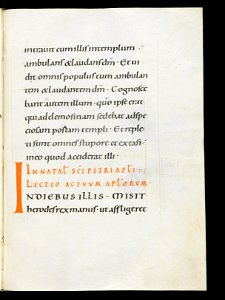 intrauit cum illis in templum
ambulans & laudans dm̄ · Et ui
dit omnis populus eum ambulan
tem & laudantem dm̄ · Cognosce
bant autem illum · quō ipse erat
qui ad elemosinam sedebat ad spe
ciosam portam templi · Et reple
ti sunt omnes stupore et extasi
in eo quod acciderat illi ·
IN NATAƚ · SCI PETRI APƚI ·
LECTIO ACTUUM APƚORUM ·
IN DIEBUS ILLIS · MISIT
herodes rex manus · ut affligeret